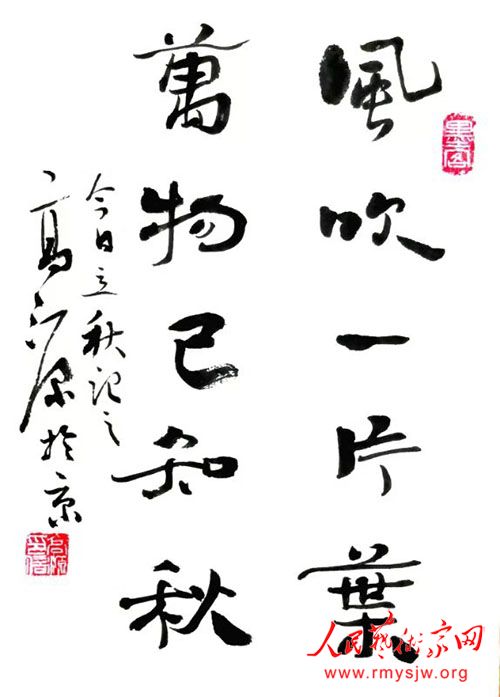 風吹一片葉
萬物已知秋
今日立秋记之
高江原於京
人民藝術家网
www.rmysjw.org